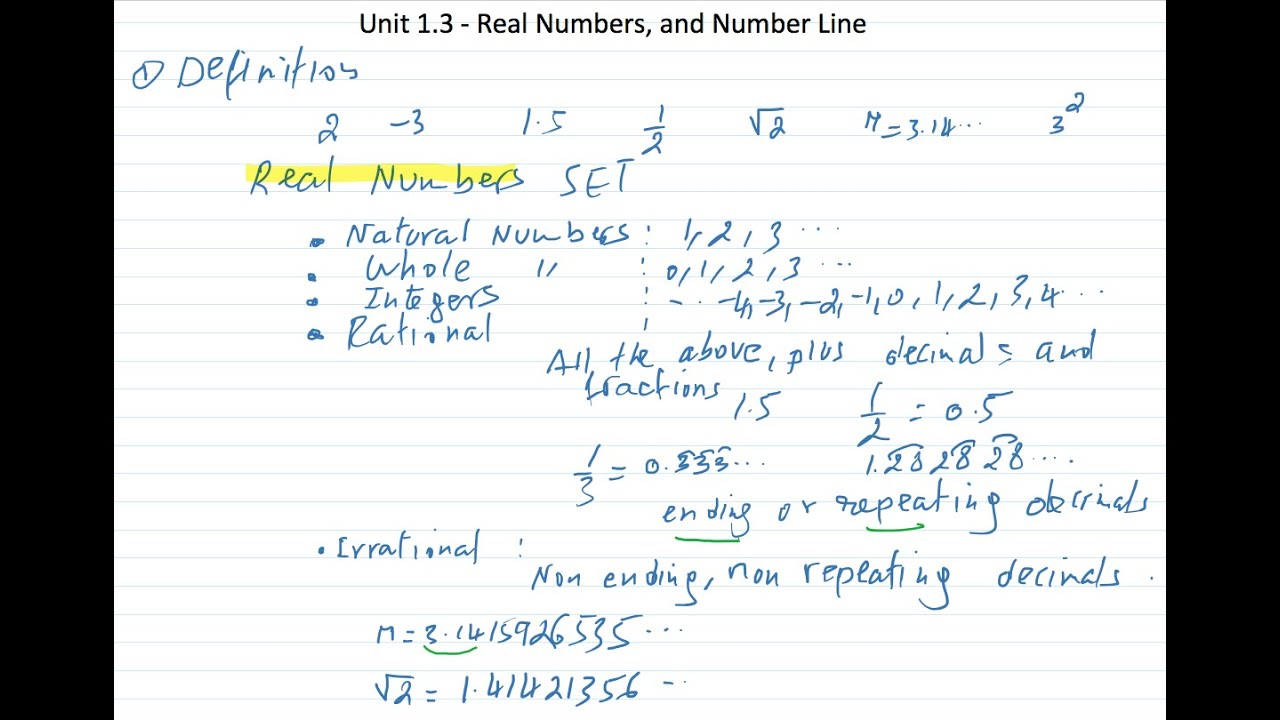 Unit 1.3 - Real Numbers, and Number Line
① Definition
2 -3 1.5 1/2 √2 π = 3.14... 3²
Real Numbers SET
• Natural Numbers : 1, 2, 3 ...
• Whole " : 0, 1, 2, 3 ...
• Integers : -.. -4, -3, -2, -1, 0, 1, 2, 3, 4 ...
• Rational :
All the above, plus decimals and
fractions 1.5 1/2 = 0.5
1/3 = 0.333... 1.282828....
ending or repeating decimals
• Irrational :
Non ending, non repeating decimals.
π = 3.1415926535...
√2 = 1.41421356 --